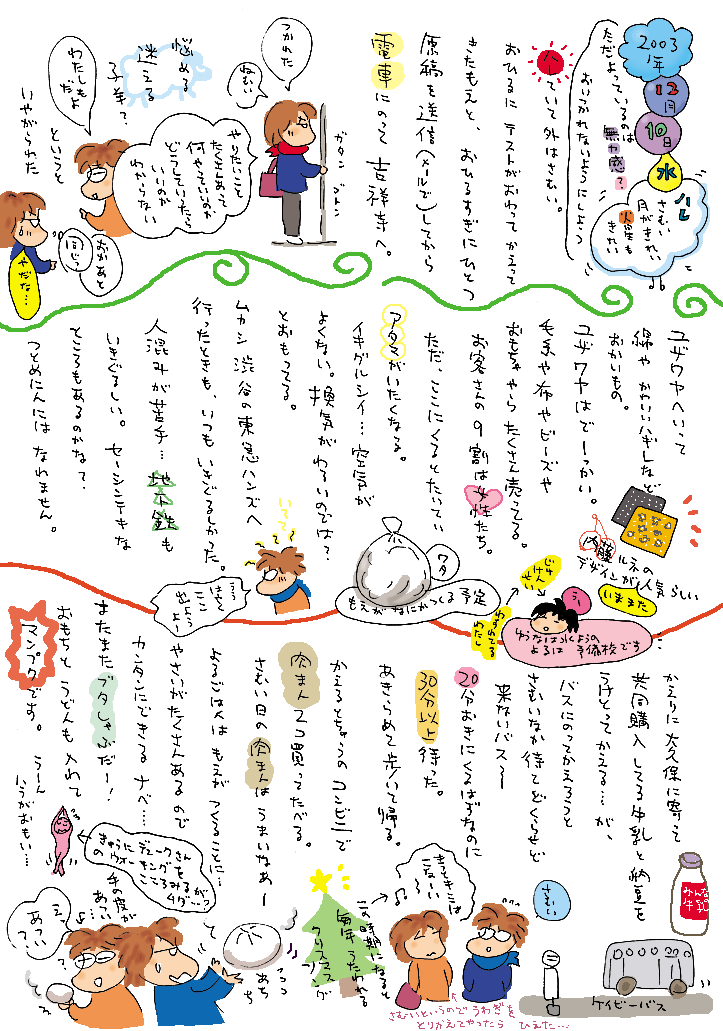 2003年
12月
10日
水
ハレ
さむい
月がきれい
人生も
きれい
ただよっているのは
無力感?
おいつかれないようにしよう
ハレていて外はさむい。
おひるに テストがおわって かえって
きたもえと、おひるすぎに ひとつ
原稿を送信(メールで)してから
電車にのって 吉祥寺へ。
ガタン ゴトン
つかれた
ねむい
やりたいこと
たくさんあって
何やっていいか
どうしていったら
いいのか
わからない
悩める
迷える
子羊?
わたしもよ
だよ
というと
いやがられた
おかあと
同じっ
やだな…
ユザワヤへいって
綿や かわいいハギレなど
おかいもの。
ユザワヤは でーっかい。
毛糸や布やビーズや
おもちゃやら たくさん売ってる。
お客さんの9割は女性たち。
ただ、ここにくるとたいてい
アタマがいたくなる。
イキグルシイ…空気が
よくない。換気がわるいのでは?
とおもってる。
ムカシ 渋谷の東急ハンズへ
行ったときも、いつもいきぐるしかった。
人混みが苦手…地下鉄も
いきぐるしい。セーシンテキな
ところもあるのかな?
つとめにんには なれません。
内藤ルネの
デザインが人気らしい
いままた
ワタ
もえがなにかつくる予定
いててて
ううう
はやく
ここ
出よう
よー
じゅけんせい
わすれてる
わたし
ゆうなは ふくようの
よるは 予備校です
かえりに大久保に寄って
共同購入してる牛乳と納豆を
うけとってかえる…が、
バスにのってかえろうと
さむいなか待てどくらせど
来ないバス〜
20分おきにくるはずなのに
30分以上待った。
あきらめて歩いて帰る。
かえるとちゅうの コンビニで
肉まん 2コ買ってたべる。
さむい日の肉まんは うまいなあー
よるごはんは もえが つくることに…
やさいがたくさんあるので
カンタンにできる ナベ…
またまた ブタしゃぶだー!
おもちと うどんも入れて
マンプクです。
うーん
ハラがおもい…
デュークさんが
きゅうにウォーキング
こころみる
みんな
牛乳
さむい
ケイビーバス
この時期になると
毎年うたわれる
クリスマスソング
きっときみは
こなーい
さむいというのでうわぎを
とりかえてやったら ひえた…
あちあち
手の皮が
あつい
え?
あつい?